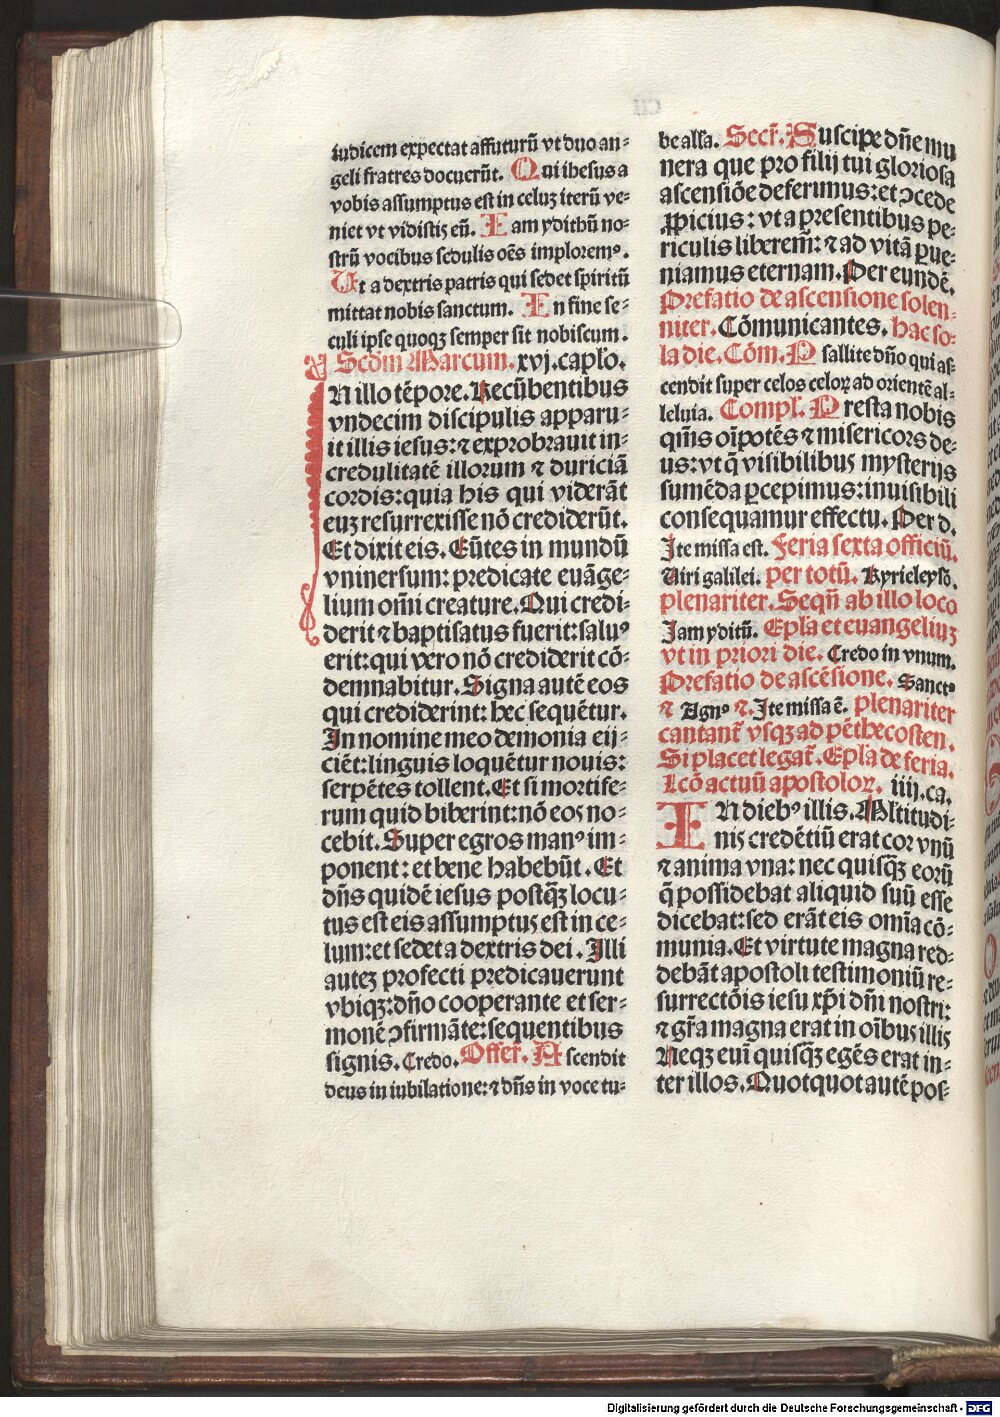 iudicem expectat affuturū vt duo an⸗
geli fratres docuerūt. Qui ihesus a
vobis assumptus est in celuꝫ iterū ve⸗
niet vt vidistis eū. Iam ydithū no⸗
strū vocibus sedulis oēs imploremꝰ.
Ut a dextris patris qui sedet spiritū
mittat nobis sanctum. In fine se⸗
culi ipse quoqꝫ semper sit nobiscum.
Scd̄m Marcum. xvj. caplo.
IN illo tēpore. Recūbentibus
vndecim discipulis apparu⸗
it illis iesus: ⁊ exprobrauit in⸗
credulitatē illorum ⁊ duriciā
cordis: quia his qui viderāt
euꝫ resurrexisse nō crediderūt.
Et dixit eis. Eūtes in mundū
vninersum: predicate euāge⸗
lium om̄i creature. Qui credi⸗
derit ⁊ baptisatus fuerit: saluꝰ
erit: qui vero nō crediderit cō⸗
demnabitur. Signa autē eos
qui crediderint: hec sequētur.
In nomine meo demonia eij⸗
ciēt: linguis loquētur nouis:
serpētes tollent. Et si mortife⸗
rum quid biberint: nō eos no⸗
cebit. Super egros manꝰ im⸗
ponent: et bene habebūt. Et
dn̄s quidē iesus postqꝫ̄ locu⸗
tus est eis assumptus est in ce⸗
lum: et sedet a dextris dei. Illi
auteꝫ profecti predicauerunt
vbiqꝫ: dn̄o cooperante et ser⸗
monē ↄfirmāte: sequentibus
signis. Credo. Offer̄. Ascendit
deus in iubilatione: ⁊ dn̄s in voce tu⸗
be alla. Secr̄. Suscipe dn̄e mu
nera que pro filij tui gloriosa
ascensiōe deferimus: et ↄcede
ꝓpicius: vt a presentibus pe⸗
riculis liberem̄: ⁊ ad vitā ꝑue⸗
niamus eternam. Per eundē.
Prefatio de ascensione solen⸗
niter. Cōmunicantes. hac so⸗
la die. Cōm. Psallite dn̄o qui as⸗
cendit super celos celoꝝ ad orientē al⸗
leluia. Compl̄. Presta nobis
qm̄s oīpotēs ⁊ misericors de⸗
us: vt q̄ visibilibus mysterijs
sumēda ꝑcepimus: inuisibili
consequamur effectu. Per d.
Ite missa est. Feria sexta officiū.
Uiri galilei. per totū. Kyrieleysō.
plenariter. Seqn̄ ab illo loco
Jam yditū. Epl̄a et euangeliuꝫ
vt in priori die. Credo in vnum.
Prefatio de ascēsione. Sanctꝰ
⁊ Agnꝰ ⁊. Ite missa ē. plenariter
cantant̄ vsqꝫ ad pēthecosten.
Si placet legat̄. Epl̄a de feria.
Lcō actuū apostoloꝝ. iiij. ca.
IN diebꝰ illis. Ml̄titudi⸗
nis credētiū erat cor vnū
⁊ anima vna: nec quisqꝫ̄ eorū
q̄ possidebat aliquid suū esse
dicebat: sed erāt eis omīa cō⸗
munia. Et virtute magna red⸗
debāt apostoli testimoniū re⸗
surrectōis iesu xp̄i dn̄i nostri:
⁊ gr̄a magna erat in oībus illis
Neqꝫ euī quisqꝫ̄ egēs erat in⸗
ter illos. Quotquot autē pos⸗
Digitalisierung gefördert durch die Deutsche Forschungsgemeinschaft - DFG